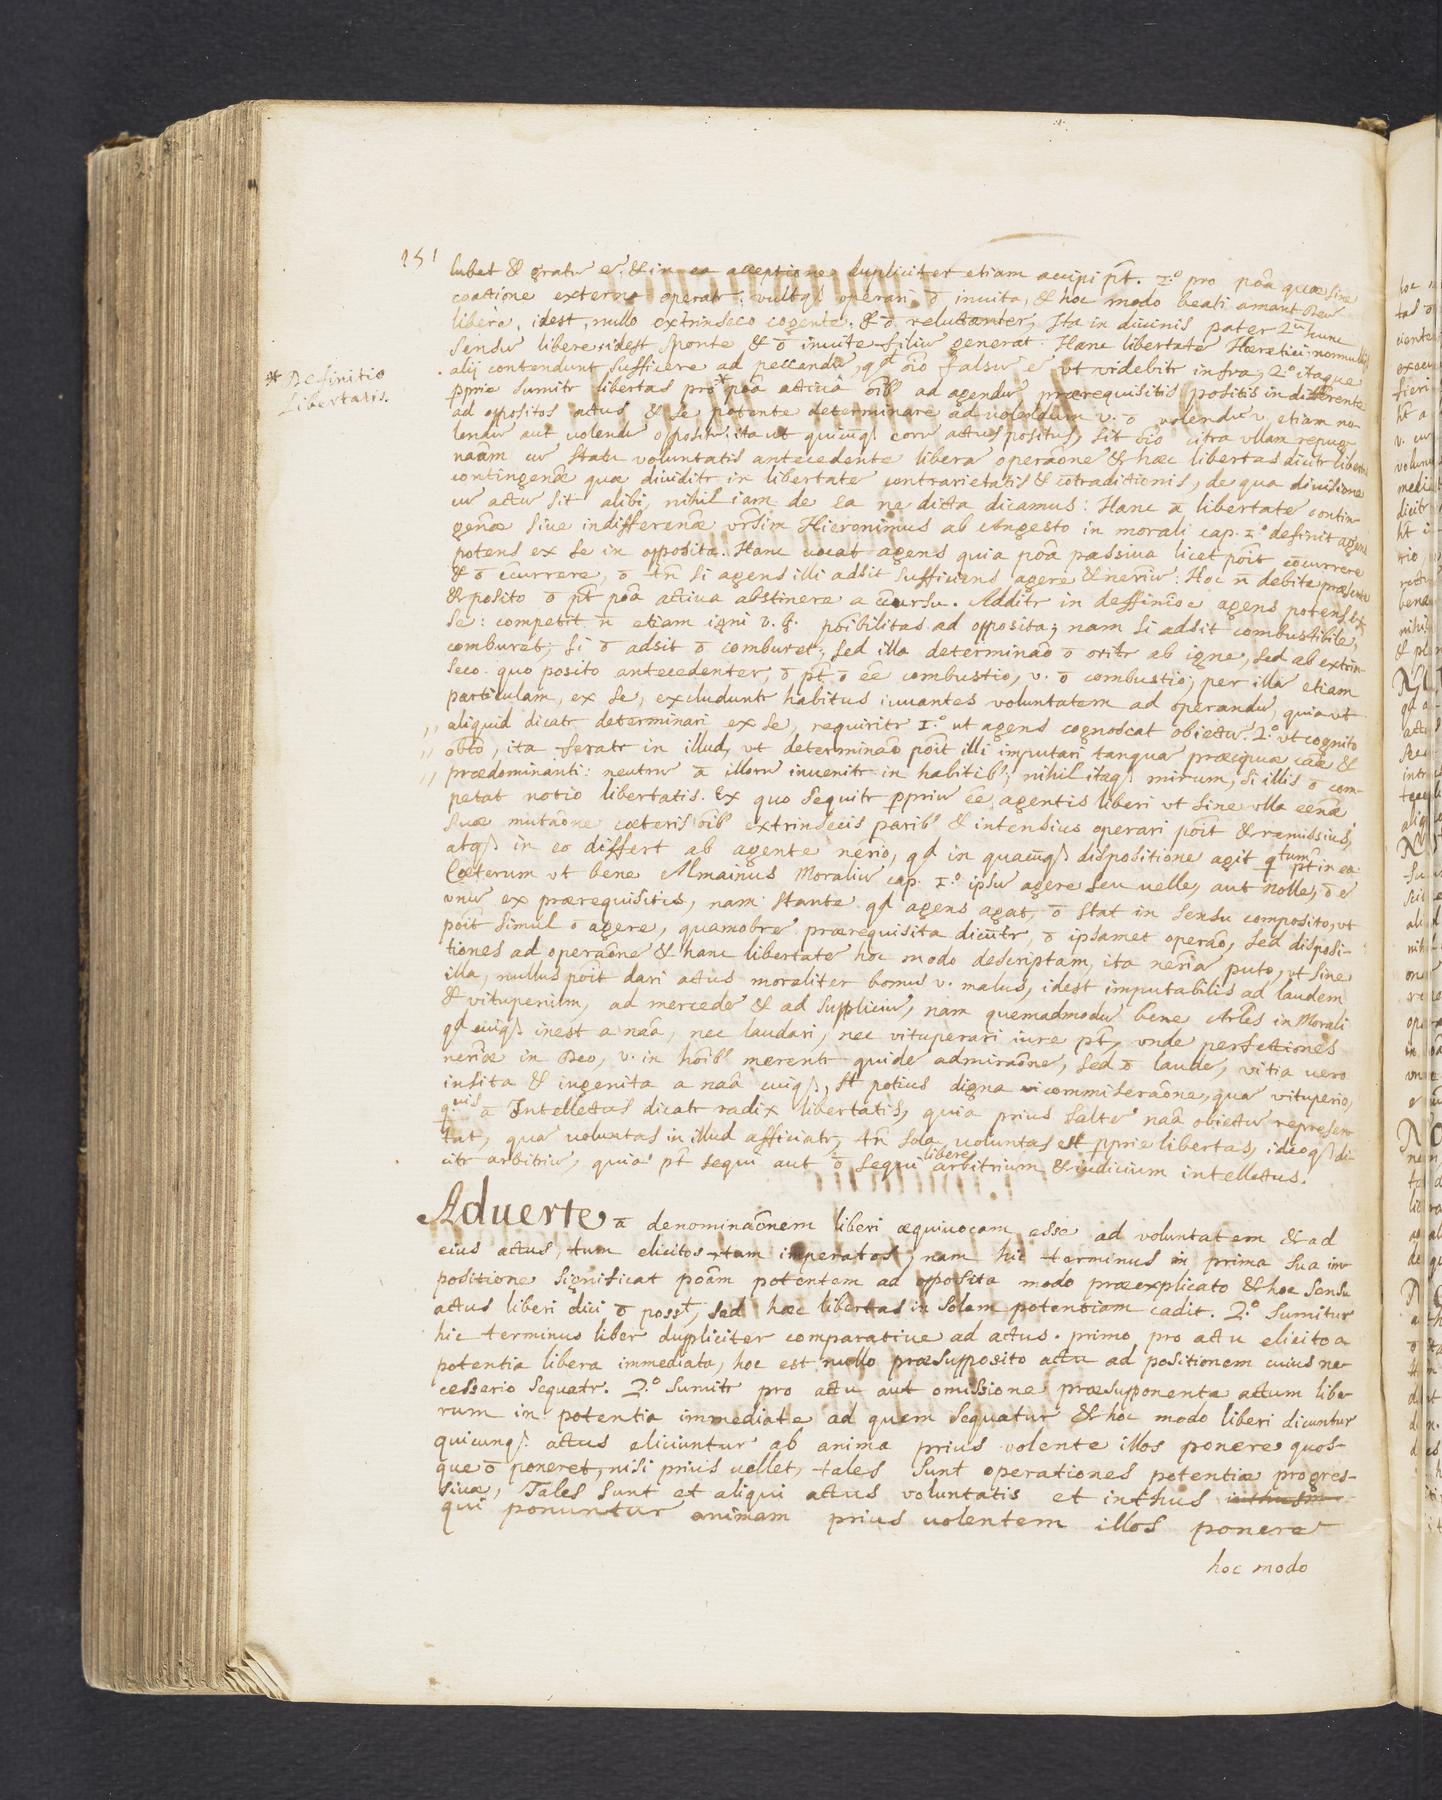 151
lubet & gratũ ẽ. & in ea acceptione dupliciter etiam accipi pt̃. 1.º pro poã quæ sine
coactione externa operatr̃, vultq; operari, õ invita, & hoc modo beati amant Deũ
libere, idest, nullo extrinseco cogente, & õ reluctanter, Ita in divinis pater 2ũ hunc
sensũ libere idest sponte & õ invite filiũ generat. Hanc libertatẽ Hæretici nonnulli
alij contendunt sufficere ad peccandũ, qd oĩo falsũ ẽ vt videbitr̃ infra, 2.º itaque
* Definitio
Libertatis.
pprie sumitr̃ libertas pro * poã activã oĩb⁹ ad agendũ prærequisitis positis indifferente
ad oppositos actus & se potente determinare ad volendum v. õ volendũ v. etiam no-
lendũ aut volendũ oppositũ, ita ut quicũq; eorũ actus positus, sit oĩo citra vllam repug-
naãm cũ statu voluntatis antecedente libera operaõne & hæc libertas dicitr̃ libertas
contingenẽ quæ dividitr̃ in libertatẽ contrarietatis & cõtradictionis, de qua divisione
cũ actũ sit alibi, nihil iam de ea ne dicta dicamus: Hanc ã libertatẽ contin-
genẽ sive indifferenẽ vrsim Hieronimus ab Angesto in morali cap. 1.º definit agens
potens ex se in opposita. Hanc vocat agens quia poã passiva licet põit cõcurrere
& õ cc̃urrere, õ tñ si agens illi adsit sufficiens agere & necriũ: Hoc ñ debite præsente
& posito õ pt̃ poã activa abstinere a cc̃ursu. Additr̃ in deffiniõe agens potens ex
se: competit ñ etiam igni v. g. põibilitas ad opposita; nam si adsit combustibile,
comburet; si õ adsit õ comburet; sed illa determinaõ õ oritr̃ ab igne, sed ab extrin-
seco quo posito antecedenter, õ pt̃ õ eẽ combustio, v. õ combustio; per illã etiam
particulam, ex se, excluduntr̃ habitus iuvantes voluntatem ad operandũ, quia ut
,, aliquid dicatr̃ determinari ex se, requiritr̃ 1.º ut agens cognoscat obiectũ 2.º vt cognito
,, obto, ita feratr̃ in illud, vt determinaõ põit illi imputari tanquã præcipuæ caæ &
,, prædominanti: neutrũ ã illorũ invenitr̃ in habitib⁹; nihil itaq; mirum, si illis õ com-
petat notio libertatis. Ex quo sequitr̃ ppriũ eẽ agentis liberi vt sine vlla
suæ mutaõne cæteris oĩb⁹ extrinsecis parib⁹ & intensius operari põit & remissius,
atq; in eo differt ab agente necrio, qd in quacũq; dispositione agit qtum pt̃ in ea
Cæterum vt bene Almainus Moraliũ cap. 1.º ipsũ agere seu velle, aut nolle, õ ẽ
vnũ ex prærequisitis, nam stante qd agens agat, õ stat in sensu composito, vt
põit simul õ agere, quamobrẽ prærequisita dicũtr̃, õ ipsamet operaõ, sed disposi-
tiones ad operaõne & hanc libertatẽ hoc modo descriptam, ita necriã puto, vt sine
illa, nullus põit dari actus moraliter bonus v. malus, idest imputabilis ad laudem
& vituperium, ad mercedẽ & ad suppliciũ, nam quemadmodũ bene Arles in Morali
qd cuiq; inest a naã, nec laudari, nec vituperari iure pt̃, vnde perfectiones
necriæ in Deo, v. in hoĩb⁹ merentr̃ quidẽ admiraõne, sed õ laudẽ, vitia vero
insita & ingenita a naã cuiq; st̃ potius digna commiseraõne, quã vituperio,
qvis ã Intellectus dicatr̃ radix libertatis, quia prius saltẽ naã obiectũ represen-
tat, quã voluntas in illud afficiatr̃, tñ sola voluntas est pprie libertas, ideoq; di-
citr̃ arbitriũ, quia pt̃ sequi aut õ sequi libere arbitrium & iudicium intellectus.
Aduerte ã denominaõnem liberi æquivocam esse ad voluntatem & ad
eius actus, tum elicitos tum imperatos, nam hic terminus in prima sua im-
positione significat poãm potentem ad opposita modo præexplicato & hoc sensu
actus liberi dici õ posst, sed hæc libertas in solam potentiam cadit. 2.º Sumitur
hic terminus liber dupliciter comparative ad actus. primo pro actu elicito a
potentia libera immediata, hoc est nullo præsupposito actu ad positionem cuius ne-
cessario sequatr̃. 2.º Sumitr̃ pro actu aut omissione præsupponente actum libe-
rum in potentia immediate ad quem sequatur & hoc modo liberi dicuntur
quicunq; actus eliciuntur ab anima prius volente illos ponere quos-
que õ poneret, nisi prius vellet, tales sunt operationes potentiæ progres-
sivæ, Tales sunt et aliqui actus voluntatis et inthus
qui ponuntur animam prius volentem illos ponere
hoc modo